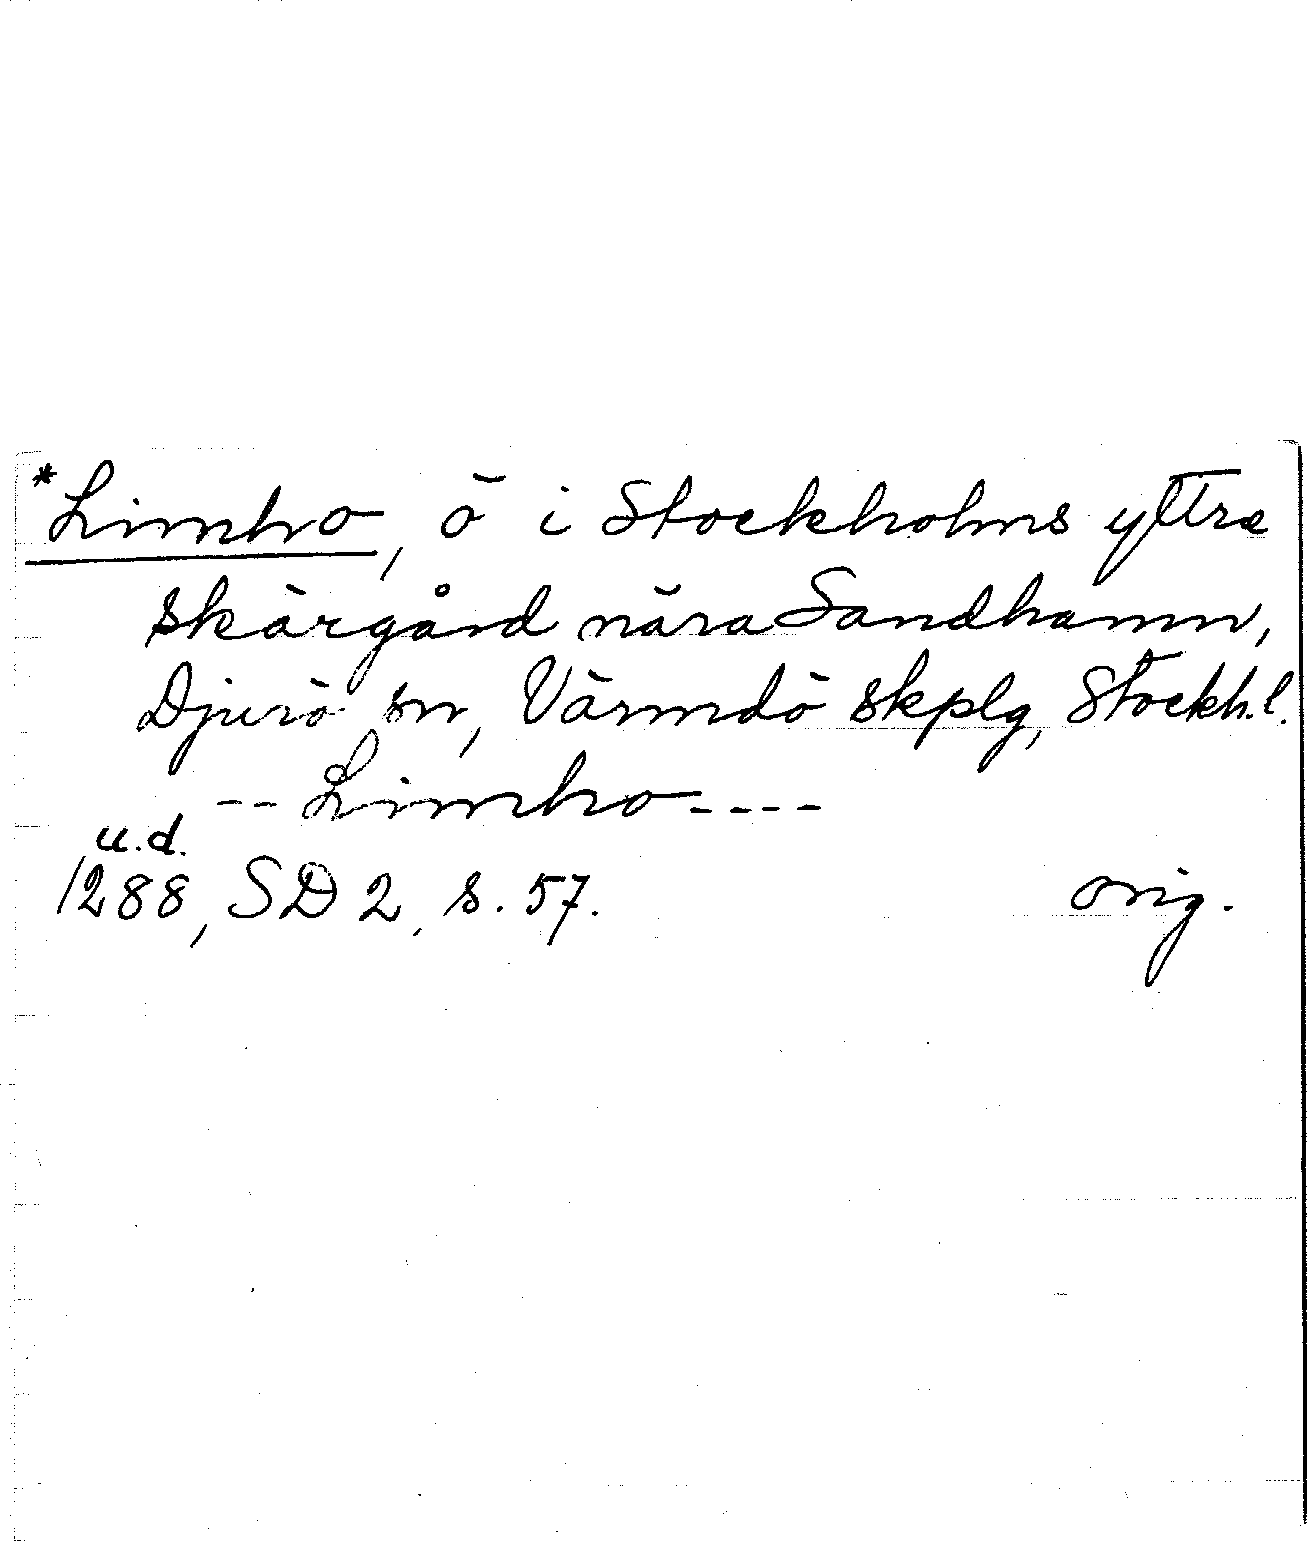 *Limbo, ö i Stockholms yttre
skärgård nära Sandhamn,
Djurö sn, Värmdö skplg, Stockh.l.
-- Limbo ----
u.d.
1288, SD 2, s. 57. orig.